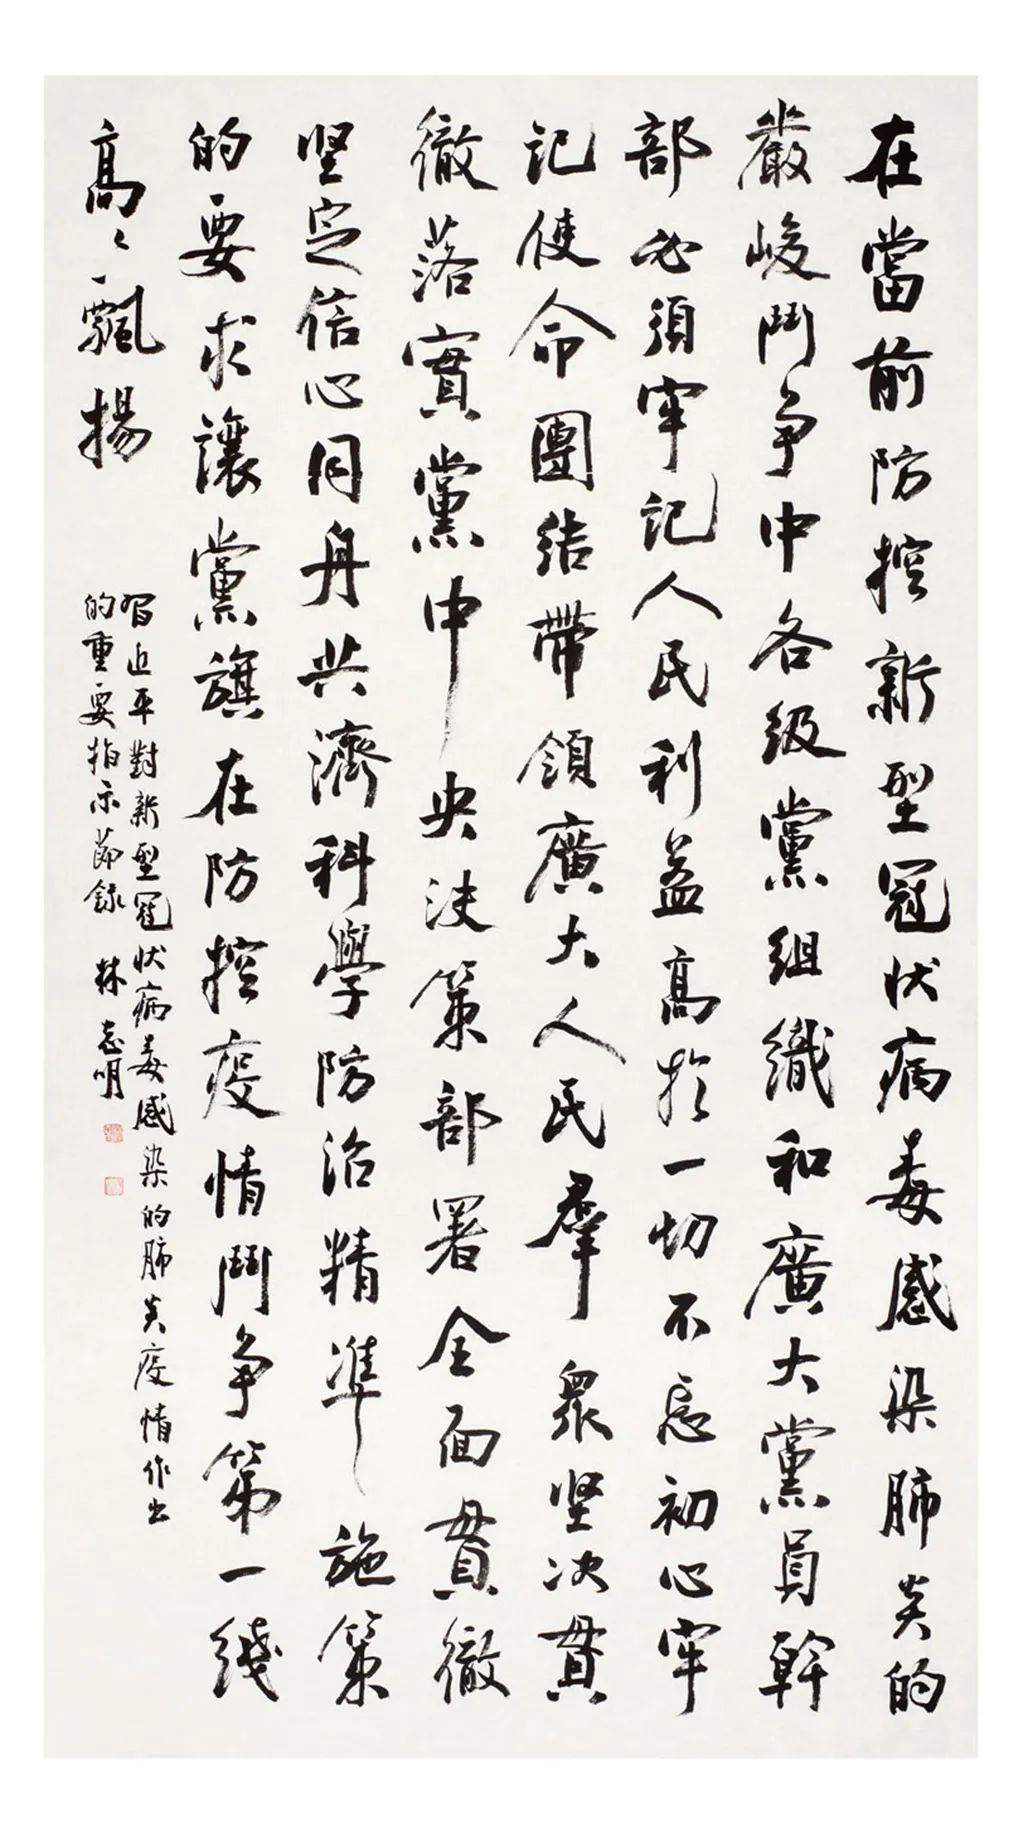 在當前防控新型冠狀病毒感染肺炎的
嚴峻鬥争中各級黨組織和廣大黨員幹
部必須牢記人民利益高於一切不忘初心牢
記使命團結帶領廣大人民羣衆坚决貫
徹落實黨中央決策部署全面貫徹
坚定信心同舟共濟科學防治精準施策
的要求讓黨旗在防控疫情鬥争第一綫
高々飄揚
習近平對新型冠狀病毒感染的肺炎疫情作出
的重要指示節錄 林志明